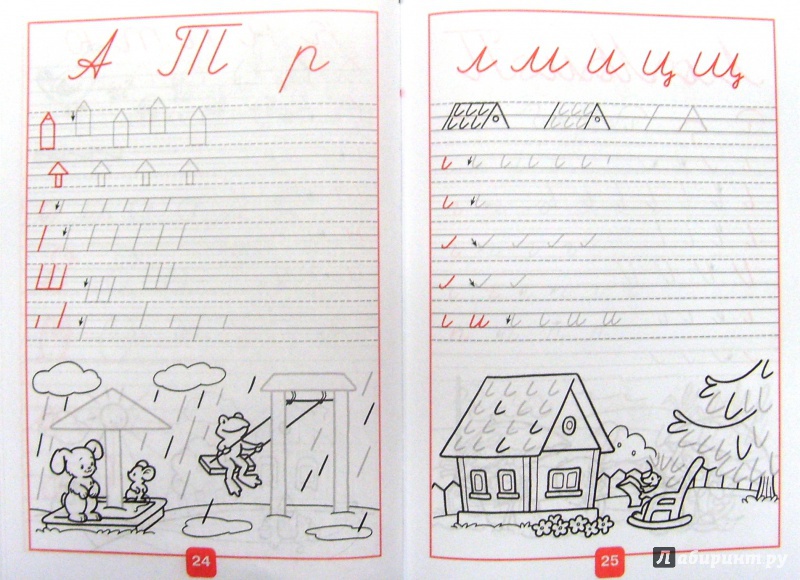 А Т р
л м и ц щ
и
24
25
Лабиринт.ру